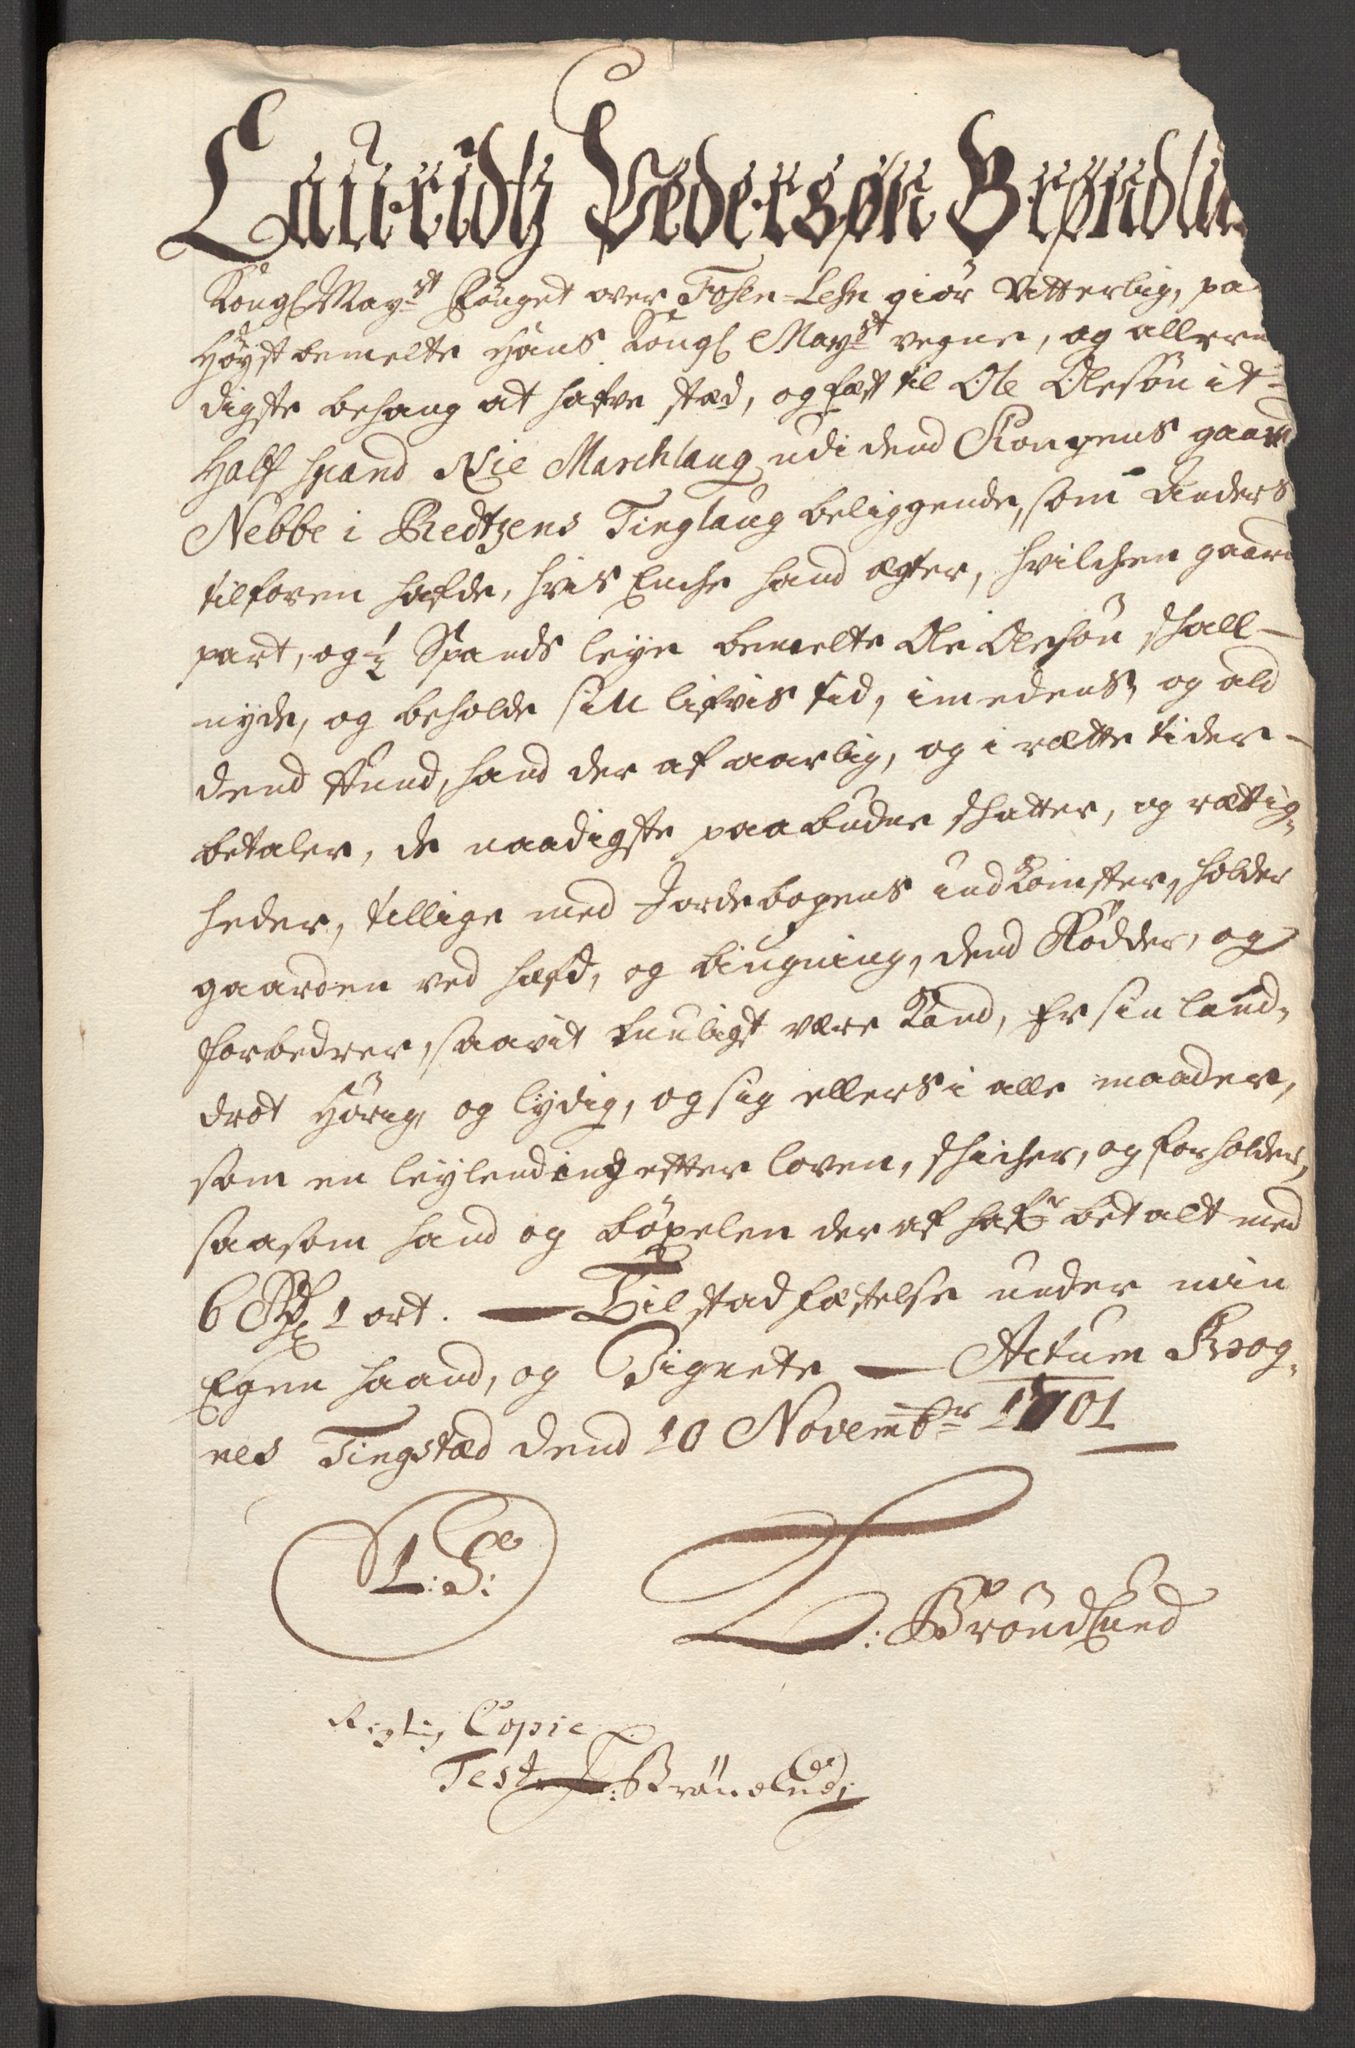 Lauridtz Pedersøn Brøndlu
Kongl May:st Fouget over Fosen-Lehn giør Vitterlig, paa
Høystbemelte Hans Kongl May:st vegne, og allerun
digste behaug at hafve stæd, og fæst til Ole Olesøn it
Half spand Nie Marchlaug udi dend Kongens gaard
Nebbe i Redtzens Tinglaug beliggende, som Anders
tilforen hafde, hvis Enche hand egter, hvilchen gaard
part, og ½ Spands leye bemelte Ole Olesøn schall
nyde, og beholde sin lifvis tid, imedens, og ald
dend stund, hand der af aarlig, og i rætte tider
betaler, de naadigste paabudne schatter, og rættig,
heder, tillige med Jordebogens indkomster, holder
gaarden ved hæfd, og biugning, dend Rødder, og
forbedrer, saavit mueligt være kand, Er sin land,
drot Hørig, og lydig, og sig ellers i alle maader,
som en leylending efter loven, schicher, og forholder,
saasom hand og bøxelen der af hafr betalt med
6 Rd 1 ort. Til stadfæstelse under min
Egen haand, og Signete Actum Krog,
nes Tingstæd dend 10 Novembr 1701
L:S:
L: Brøndlund
Rigtig Copie
Test L: Brøndlund